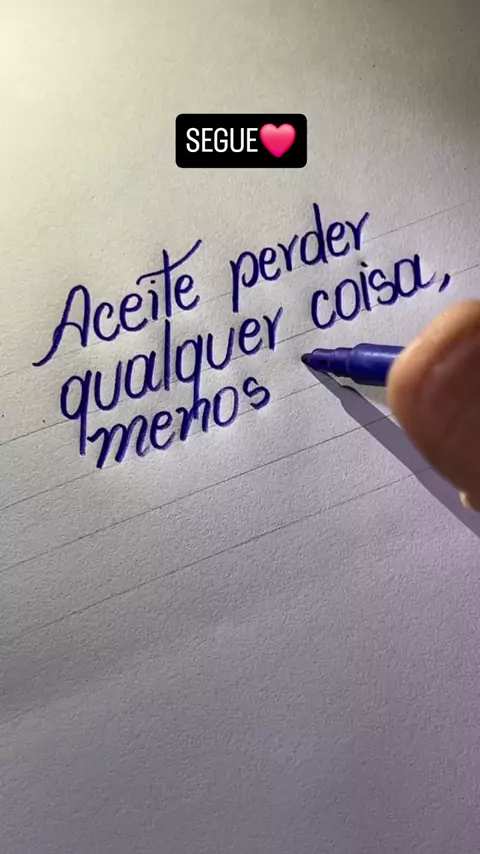 SEGUE🩷
Aceite perder
qualquer coisa,
menos